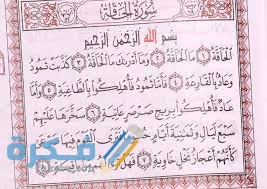 سُورَةُ الْحَاقَّةِ
بِسْمِ اللَّهِ الرَّحْمَٰنِ الرَّحِيمِ
الْحَاقَّةُ ١ مَا الْحَاقَّةُ ٢ وَمَا أَدْرَاكَ مَا الْحَاقَّةُ ٣ كَذَّبَتْ ثَمُودُ
وَعَادٌ بِالْقَارِعَةِ ٤ فَأَمَّا ثَمُودُ فَأُهْلِكُوا بِالطَّاغِيَةِ ٥ وَأَمَّا
عَادٌ فَأُهْلِكُوا بِرِيحٍ صَرْصَرٍ عَاتِيَةٍ ٦ سَخَّرَهَا عَلَيْهِمْ
سَبْعَ لَيَالٍ وَثَمَانِيَةَ أَيَّامٍ حُسُومًا فَتَرَى الْقَوْمَ فِيهَا صَرْعَىٰ
كَأَنَّهُمْ أَعْجَازُ نَخْلٍ خَاوِيَةٍ ٧ فَهَلْ تَرَىٰ لَهُمْ مِنْ بَاقِيَةٍ ٨
فكرة